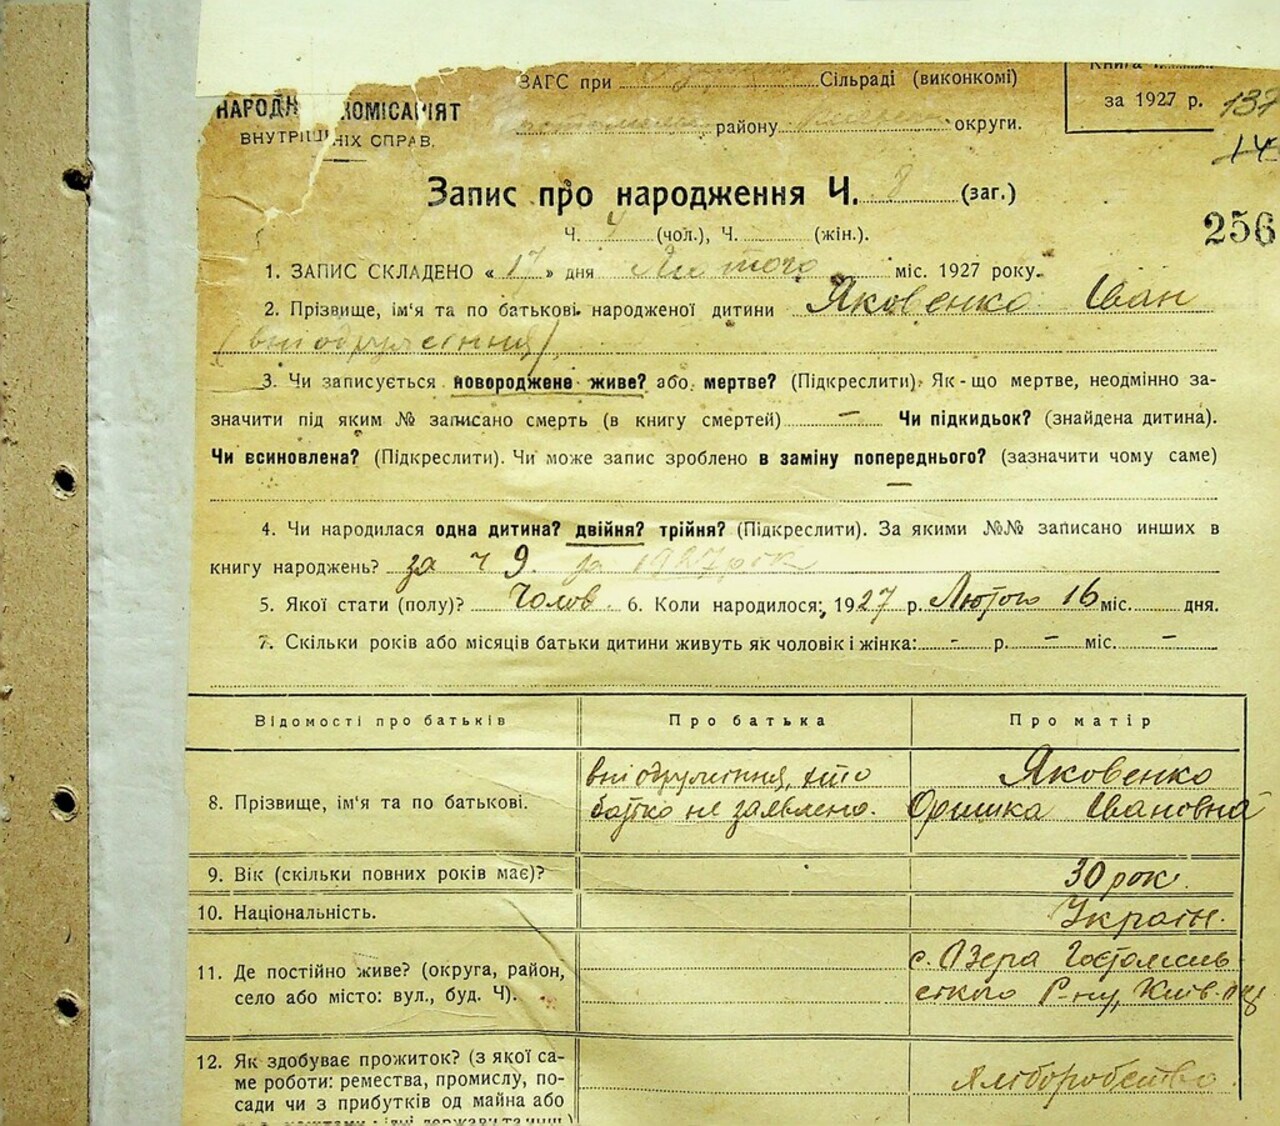 ЗАГС при Сільраді (виконкомі)
за 1927 р. 137
14
НАРОДН КОМІСАРІЯТ
ВНУТРІШНІХ СПРАВ.
району округи.
Запис про народження Ч. 8 (заг.)
Ч. 4 (чол.), Ч. (жін.).
256
1. ЗАПИС СКЛАДЕНО « 17 » дня Лютого міс. 1927 року.
2. Прізвище, ім'я та по батькові народженої дитини Яковенко Іван
(вні одруження)
3. Чи записується новороджене живе? або мертве? (Підкреслити). Як-що мертве, неодмінно за-
значити під яким № записано смерть (в книгу смертей) — Чи підкидьок? (знайдена дитина).
Чи всиновлена? (Підкреслити). Чи може запис зроблено в заміну попереднього? (зазначити чому саме)
—
4. Чи народилася одна дитина? двійня? трійня? (Підкреслити). За якими №№ записано инших в
книгу народжень? за ч 9. за 1927 рік
5. Якої стати (полу)? Чолов. 6. Коли народилося: 1927 р. Лютого 16 міс. дня.
7. Скільки років або місяців батьки дитини живуть як чоловік і жінка: - р. — міс. —
Відомості про батьків Про батька Про матір
8. Прізвище, ім'я та по батькові. вні одруження, хто Яковенко
батько не заявлено. Оришка Івановна
9. Вік (скільки повних років має)? 30 рок.
10. Національність. Україн.
11. Де постійно живе? (округа, район, с. Озера Гостомель
село або місто: вул., буд. Ч). ского Р-ну, Київ.
12. Як здобуває прожиток? (з якої са-
ме роботи: ремества, промислу, по- Хліборобство
сади чи з прибутків од майна або